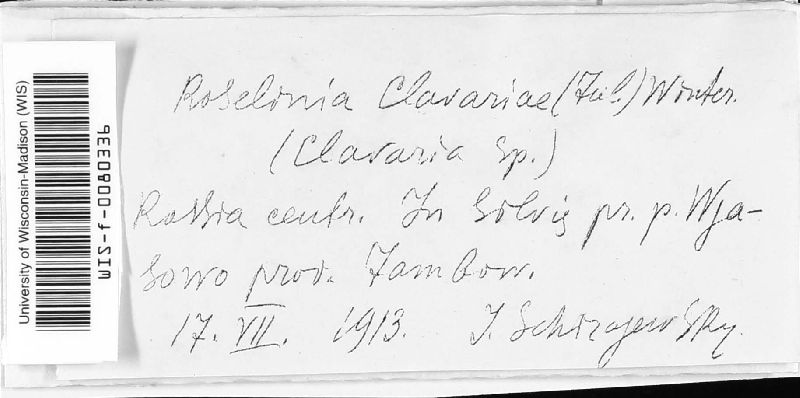 University of Wisconsin-Madison (WIS)
WIS-f-0080336
Roselinia Clavariae (Tul.) Winter.
(Clavaria sp.)
Rossia centr. In Silvis pr. p. Wja-
sowo prov. Tambow.
17. VII. 1913. J. Schirajewsky.